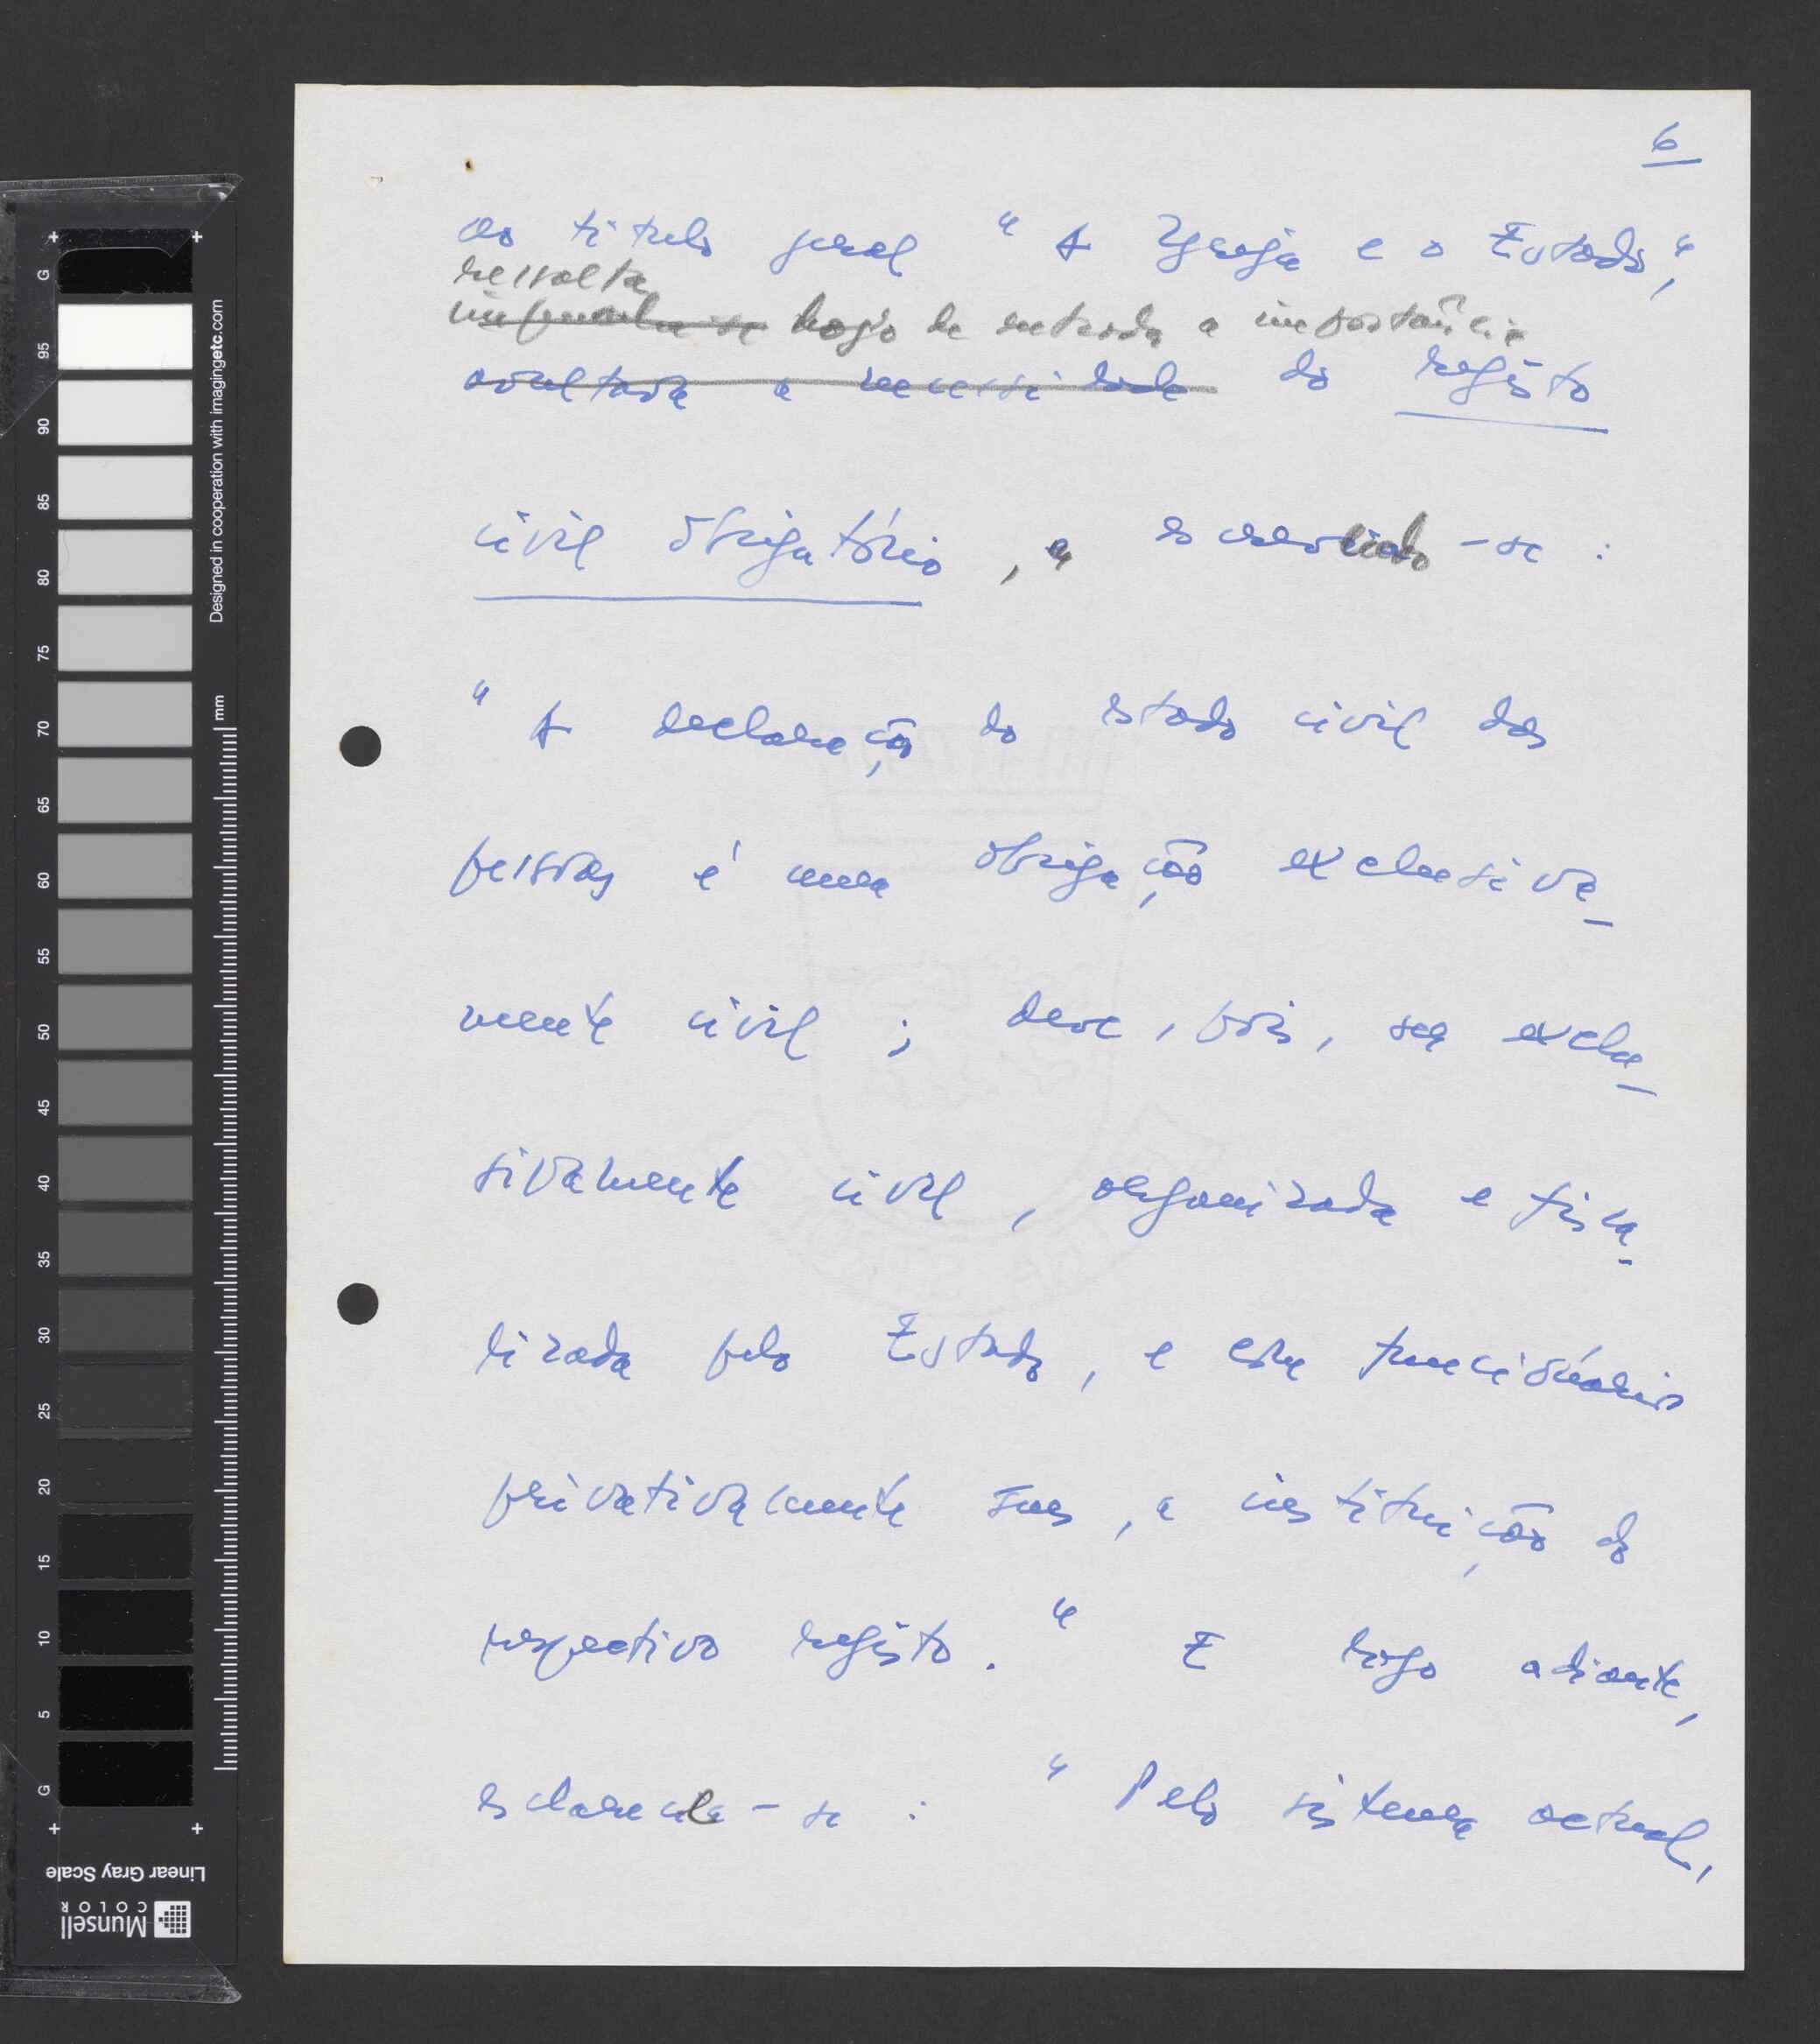 6
ao titulo geral "A Igreja e o Estado",
ressalta
logo de entrada a importância
avultava a necessidade do registo
civil obrigatório, e
"A declaração do estado civil das
pessoas é uma obrigação exclusiva_
mente civil; deve, pois, ser exclu_
sivamente civil, organizada e fisca_
lizada pelo Estado, e com funcionários
privativamente seus, a instituição do
respectivo registo." E logo adiante,
esclarece-se: "Pelo sistema actual,
G 95 90 85 80 75 70 65 60 55 50 45 40 35 30 25 20 15 10 5 G
Designed in cooperation with imagingetc.com
mm
Linear Gray Scale
Munsell
COLOR